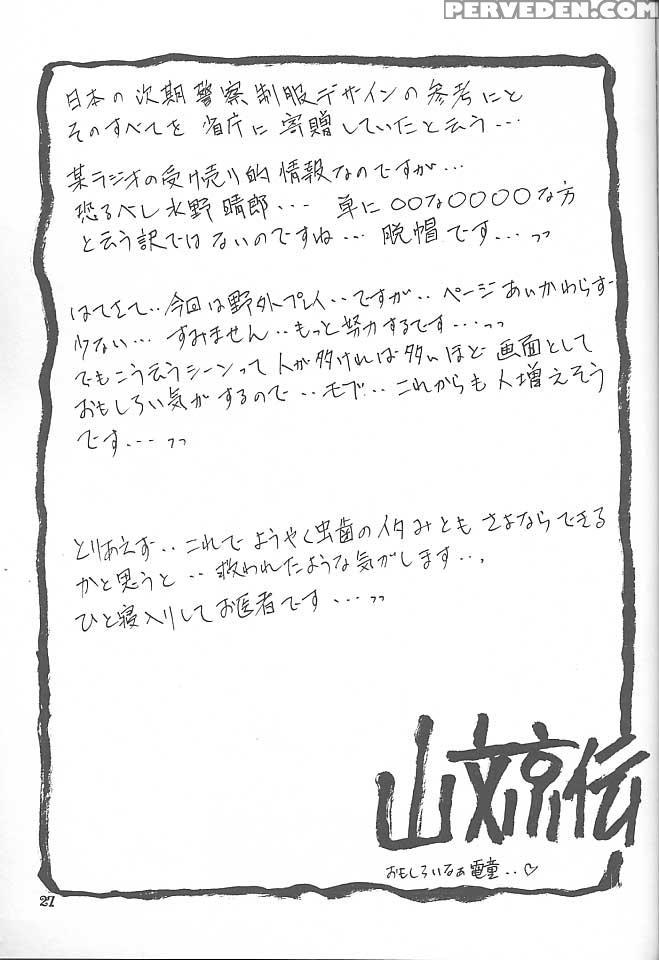 PERVEDEN.COM
日本の次期警察制服デザインの参考にと
そのすべてを省庁に寄贈していたと云う…
某ラジオの受け売り的情報なのですが…
恐るべし水野晴郎… 単に○○な○○○○な方
と云う訳ではないのですね… 脱帽です…っっ
はてさて‥今回は野外プレイ‥ですが‥ページあいかわらず
少ない… すみません‥もっと努力するです…っっ
でもこう云うシーンって人が多ければ多いほど画面として
おもしろい気がするので‥モブ…これからも人増えそう
です…っっ
とりあえず‥これでようやく虫歯のイタみともさよならできる
かと思うと‥救われたような気がします…
ひと寝入りしてお医者です…っっ
山文京伝
おもしろいなぁ電童‥♡
27